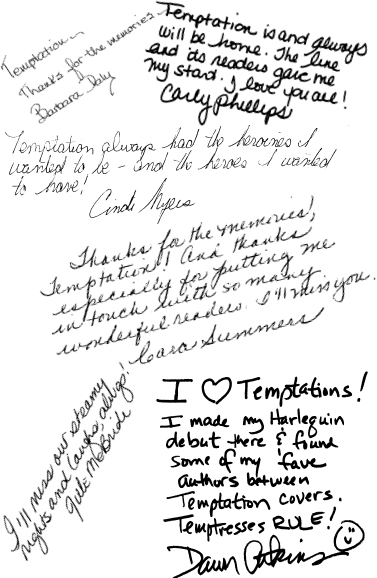 Temptation –
Thanks for the memories.
Barbara Daly
Temptation is and always
will be home. The line
and its readers gave me
my start. I love you all!
Carly Phillips
Temptation always had the heroines I
wanted to be – and the heroes I wanted
to have!
Cindi Myers
Thanks for the memories,
Temptation! And thanks
especially for putting me
in touch with so many
wonderful readers. I'll miss you.
Cara Summers
I'll miss our steamy
nights and laughs, always!
Jule McBride
I ♡ Temptations!
I made my Harlequin
debut there & found
some of my fave
authors between
Temptation covers.
Temptresses RULE!
Dawn Atkins